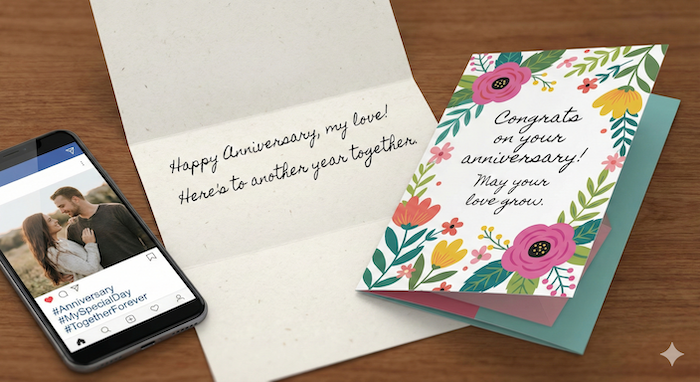 Happy Anniversary, my love!
Here's to another year together.
Congrats
on your
anniversary!
May your
love grow.
#Anniversary
#MySpecialDay
#TogetherForever